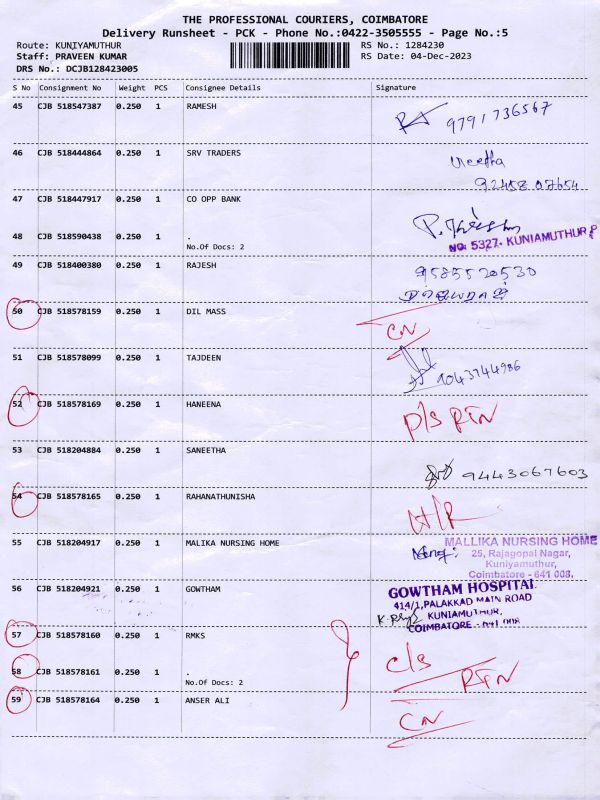 THE PROFESSIONAL COURIERS, COIMBATORE
Delivery Runsheet - PCK - Phone No.:0422-3505555 - Page No.:5
Route: KUNIYAMUTHUR RS No.: 1284230
Staff: PRAVEEN KUMAR RS Date: 04-Dec-2023
DRS No.: DCJB128423005
S No Consignment No Weight PCS Consignee Details Signature
45 CJB 518547387 0.250 1 RAMESH
9791736567
46 CJB 518444864 0.250 1 SRV TRADERS
92458 07654
47 CJB 518447917 0.250 1 CO OPP BANK
48 CJB 518590438 0.250 1 .
No.Of Docs: 2
NO: 5327. KUNIAMUTHUR
49 CJB 518400380 0.250 1 RAJESH 9585520530
50 CJB 518578159 0.250 1 DIL MASS
CN
51 CJB 518578099 0.250 1 TAJDEEN
52 CJB 518578169 0.250 1 HANEENA
P/S RTN
53 CJB 518204884 0.250 1 SANEETHA
9443067603
54 CJB 518578165 0.250 1 RAHANATHUNISHA
H/R
55 CJB 518204917 0.250 1 MALIKA NURSING HOME MALLIKA NURSING HOME
25, Rajagopal Nagar,
Kuniyamuthur,
Coimbatore - 641 008.
56 CJB 518204921 0.250 1 GOWTHAM GOWTHAM HOSPITAL
414/1, PALAKKAD MAIN ROAD
KUNIAMUTHUR,
COIMBATORE - 641 008
57 CJB 518578160 0.250 1 RMKS
C/S
58 CJB 518578161 0.250 1 .
No.Of Docs: 2
RTN
59 CJB 518578164 0.250 1 ANSER ALI
CN